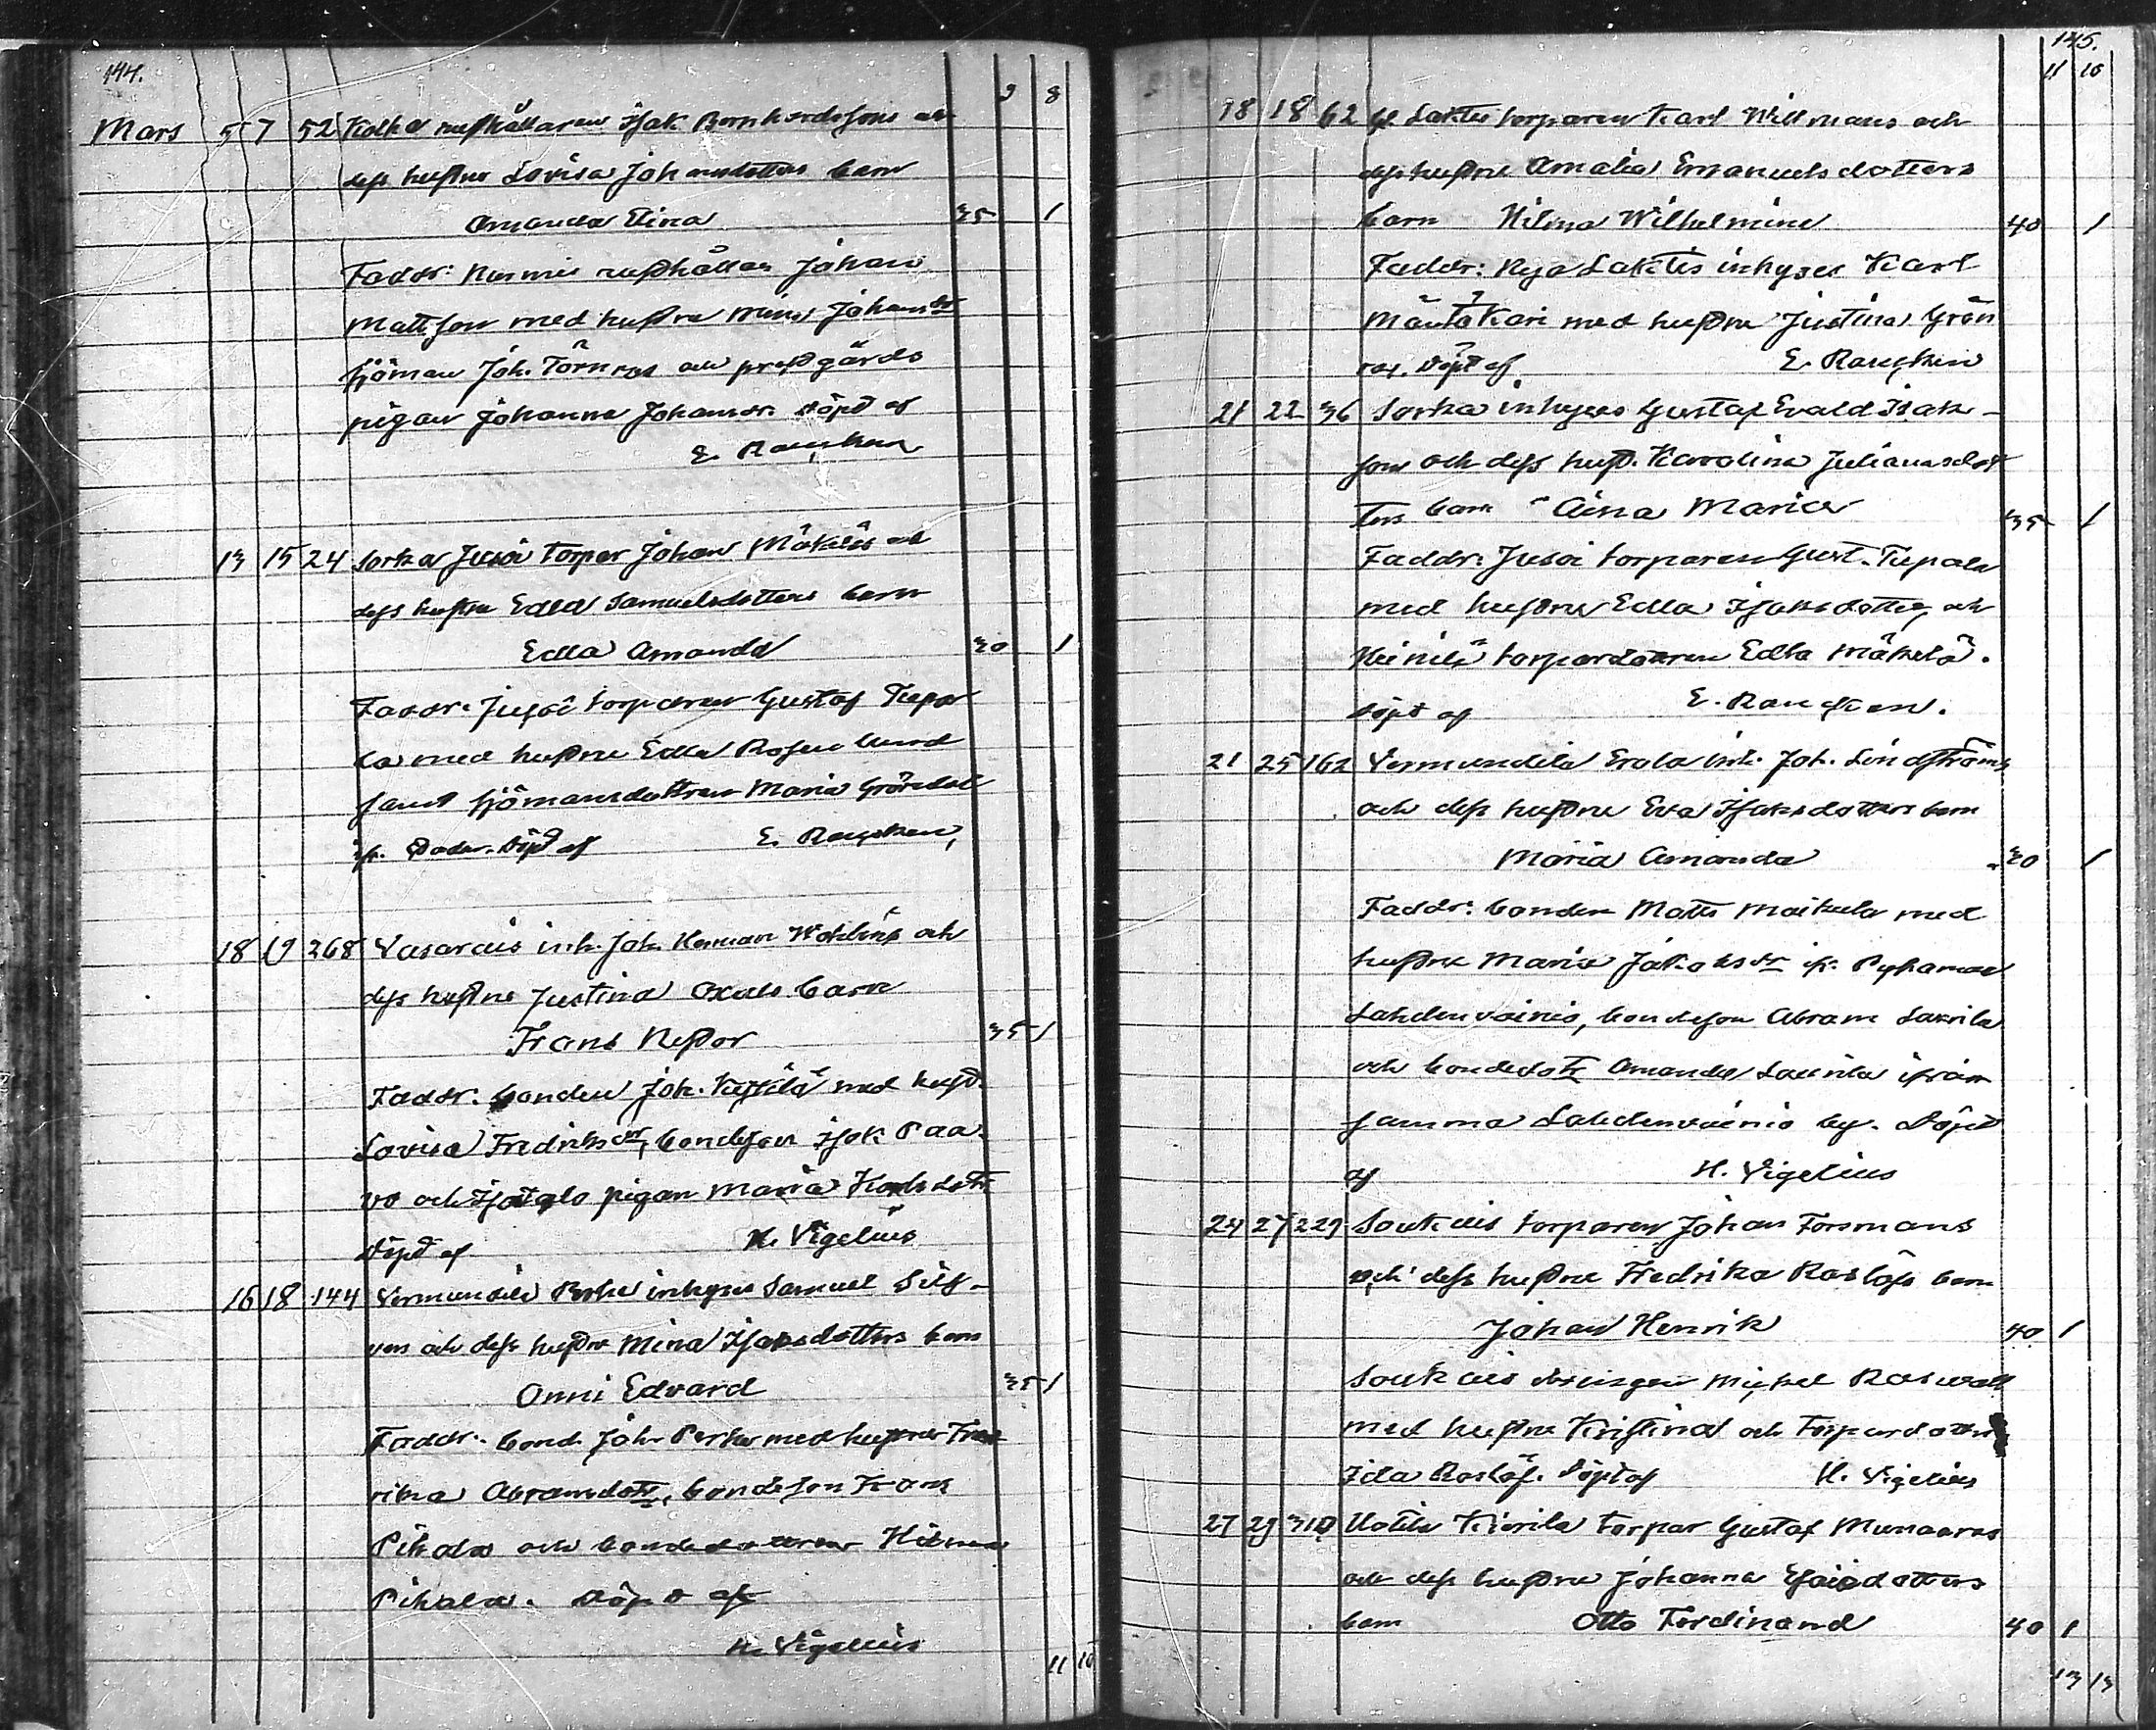 144.
9 8
Mars 5 7 52 rusthållaren Isak Bernhardssons och
dess hustru Lovisa Johansdotters barn
Amanda Stina 35 1
Faddr: Nurmis rusthållar Johan
Mattsson med hustru Mina Johansdr
sjöman Joh. Törnros och prestgårds
pigan Johanna Johansdr. Döpt af
E. Rancken
13 15 24 Sorka Jusoi torpar Johan Mäkiläs och
dess hustru Edla Samuelsdotters barn
Edla Amanda 30 1
Faddr. Jusoi torparen Gustaf Tiepa
la med hustru Edla Rosenlund
samt sjömansdottren Maria Gröndal
E. Rancken
18 19 268 Vasarais inh. Joh. Herman och
dess hustru Justina barn
Frans Nestor 35 1
Faddr. bonden Joh. med hust.
Lovisa Fredriksdr, bondeson Isak Paa-
vo och pigan Maria Karlsdotr.
Döpt af H. Vigelius
16 18 144 Vermundila Perko inhyses Samuel Silf-
vers och dess hustru Mina Isaksdotters barn
Onni Edvard 35 1
Faddr. bond. Joh. Perko med hustru Fred
rika Abramsdotr, bondeson Frans
Pihala och bondedottren Hilma
Pihala. Döpt af
H. Vigelius
11 10
145.
11 10
18 18 62 Laktis torparen Karl Willmans och
dess hustru Amalia Emanuelsdotters
barn Hilma Wilhelmina 40 1
Faddr: Nya Laktis inhyses Karl
Mäntakari med hustru Justina Grön
ros. Döpt af E. Rancken
21 22 36 Sorka inhyses Gustaf Evald Isak-
son och dess hust. Karolina Juliansdot
ters barn Aina Maria 35 1
Faddr. Jusoi torparen Gust. Tiepala
med hustru Edla Isaksdotter, och
Heinilä torpardottren Edla Mäkelä.
Döpt af E. Rancken.
21 25 162 Vermundila Erola inh. Joh. Lindströms
och dess hustru Eva Isaksdotters barn
Maria Amanda 30 1
Faddr: bonden Matts Maikula med
hustru Maria Jakobsdr ifr. Pyhämaa
Lahdenvainio, bondeson Abram Laurila
och bondedotr Amanda Laurila ifrån
samma Lahdenvainio by. Döpt
af H. Vigelius
24 27 229 Soukais torparen Johan Forsmans
och dess hustru Fredrika Raslöfs barn
Johan Henrik 40 1
Soukais drängen Mickel Roswall
med hustru Kristina och torpardottren
Ida Raslöf. Döpt af H. Vigelius
27 29 310 Uotila Kiorila torpar Gustaf Munaaros
och dess hustru Johanna Esaiedotters
barn Otto Ferdinand 40 1
13 13